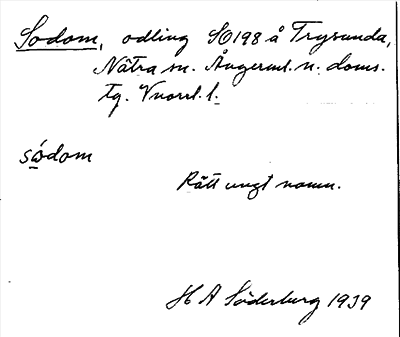 Sodom, odling SO198 å Trysunda,
Nätra sn. Ångerml. n. doms.
tg. Vnorrl. l.
sódom
Rätt ungt namn.
H A Söderburg 1939